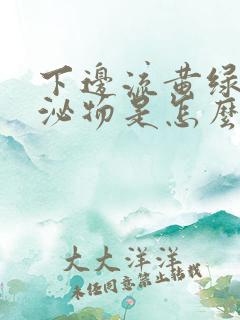 下邊流黄绿
泌物是怎麼
大大洋洋
未经同意禁止转载